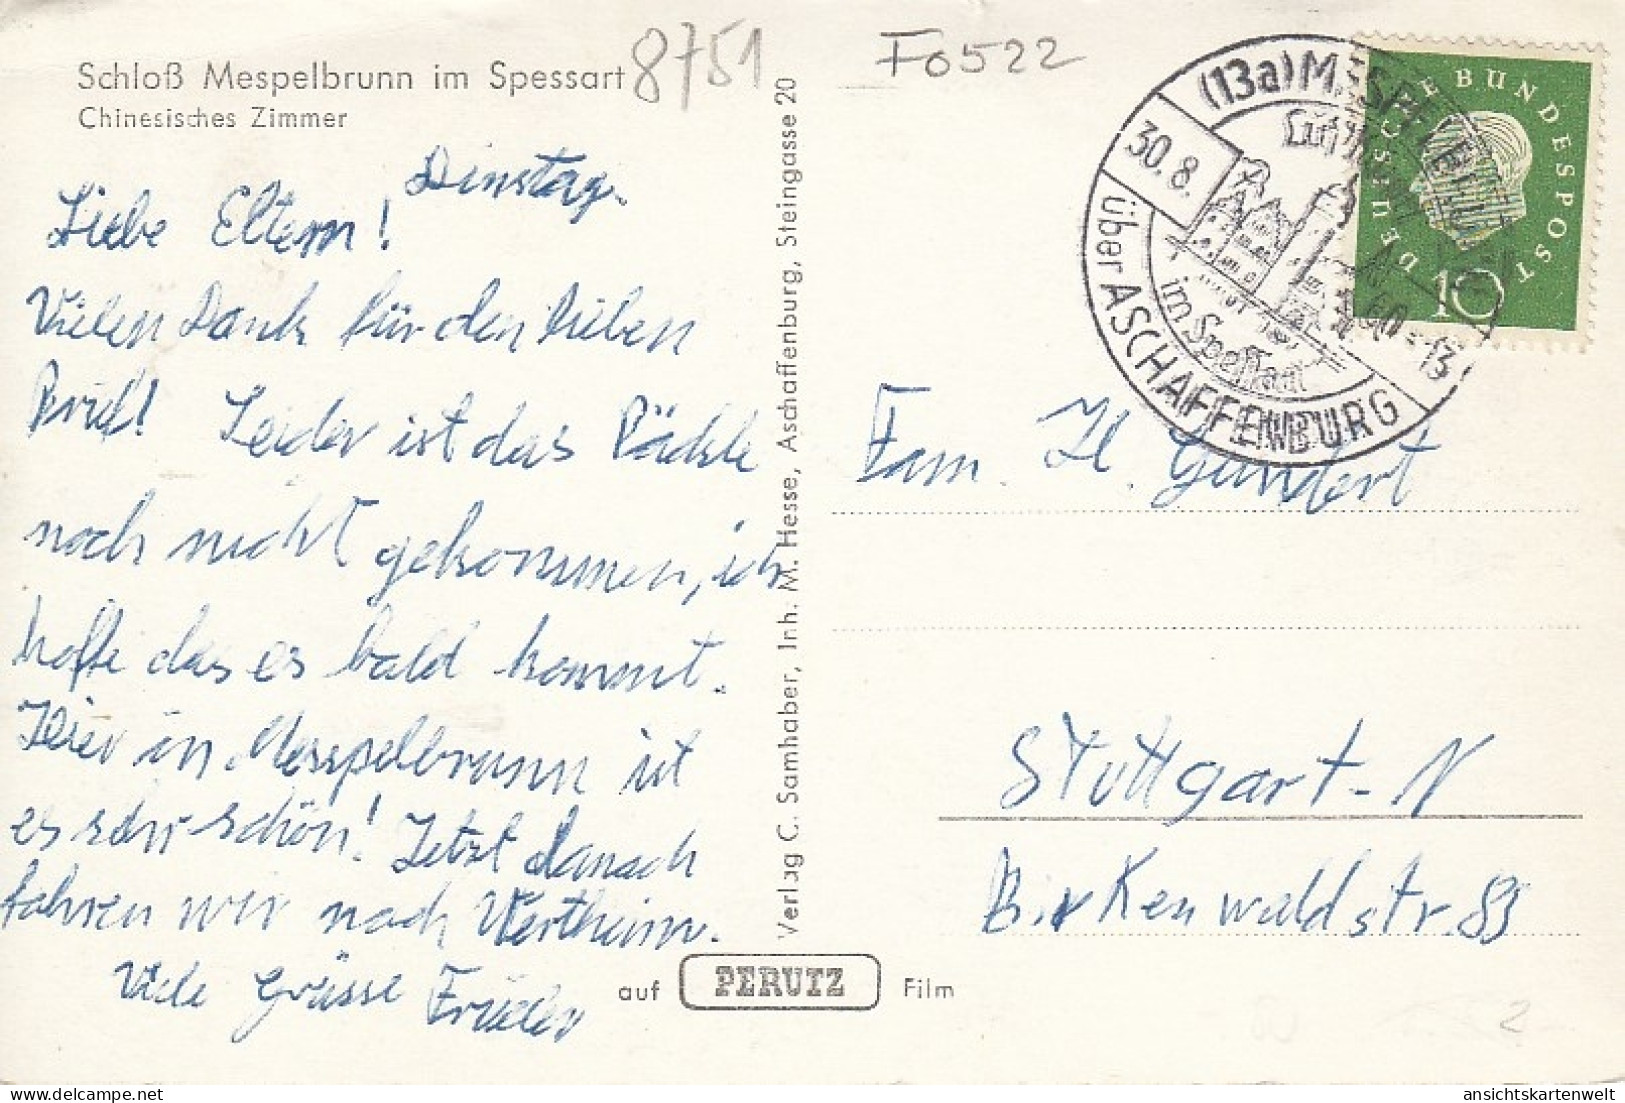 Schloß Mespelbrunn im Spessart
Chinesisches Zimmer
8751
F0522
Dinstag.
Liebe Eltern!
Vielen Dank für den lieben
Brief! Leider ist das Päckle
noch nicht gekommen, ich
hoffe das es bald kommt.
Hier in Messpelbrunn ist
es sehr schön! Jetzt danach
fahren wir nach Wertheim.
Viele Grüsse Frieder
Verlag C. Samhaber, Inh. M. Hesse, Aschaffenburg, Steingasse 20
auf PERUTZ Film
(13a) MESPELBRUNN
30.8.
60-13
im Spessart
über ASCHAFFENBURG
DEUTSCHE BUNDESPOST
10
Fam. H. Gundert
Stuttgart-N
Birkenwaldstr. 83
2
ansichtskartenwelt